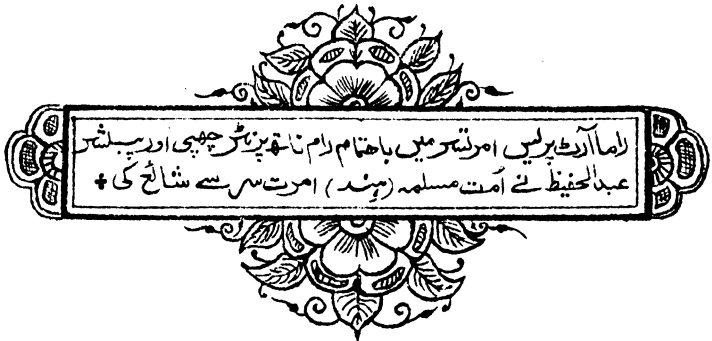 راما آرٹ پریس امرتسر میں باہتمام رام ناتھ پرنٹر چھپی اور پبلشر
عبدالحفیظ نے اُمت مسلمہ (ہند) امرت سر سے شائع کی +